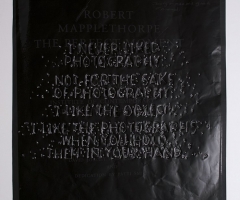 ROBERT
MAPPLETHORPE
THE
I NEVER LIKED
PHOTOGRAPHY
NOT FOR THE SAKE
OF PHOTOGRAPHY
I LIKE THE OBJECT
I LIKE THE PHOTOGRAPHS
WHEN YOU HOLD
THEM IN YOUR HAND